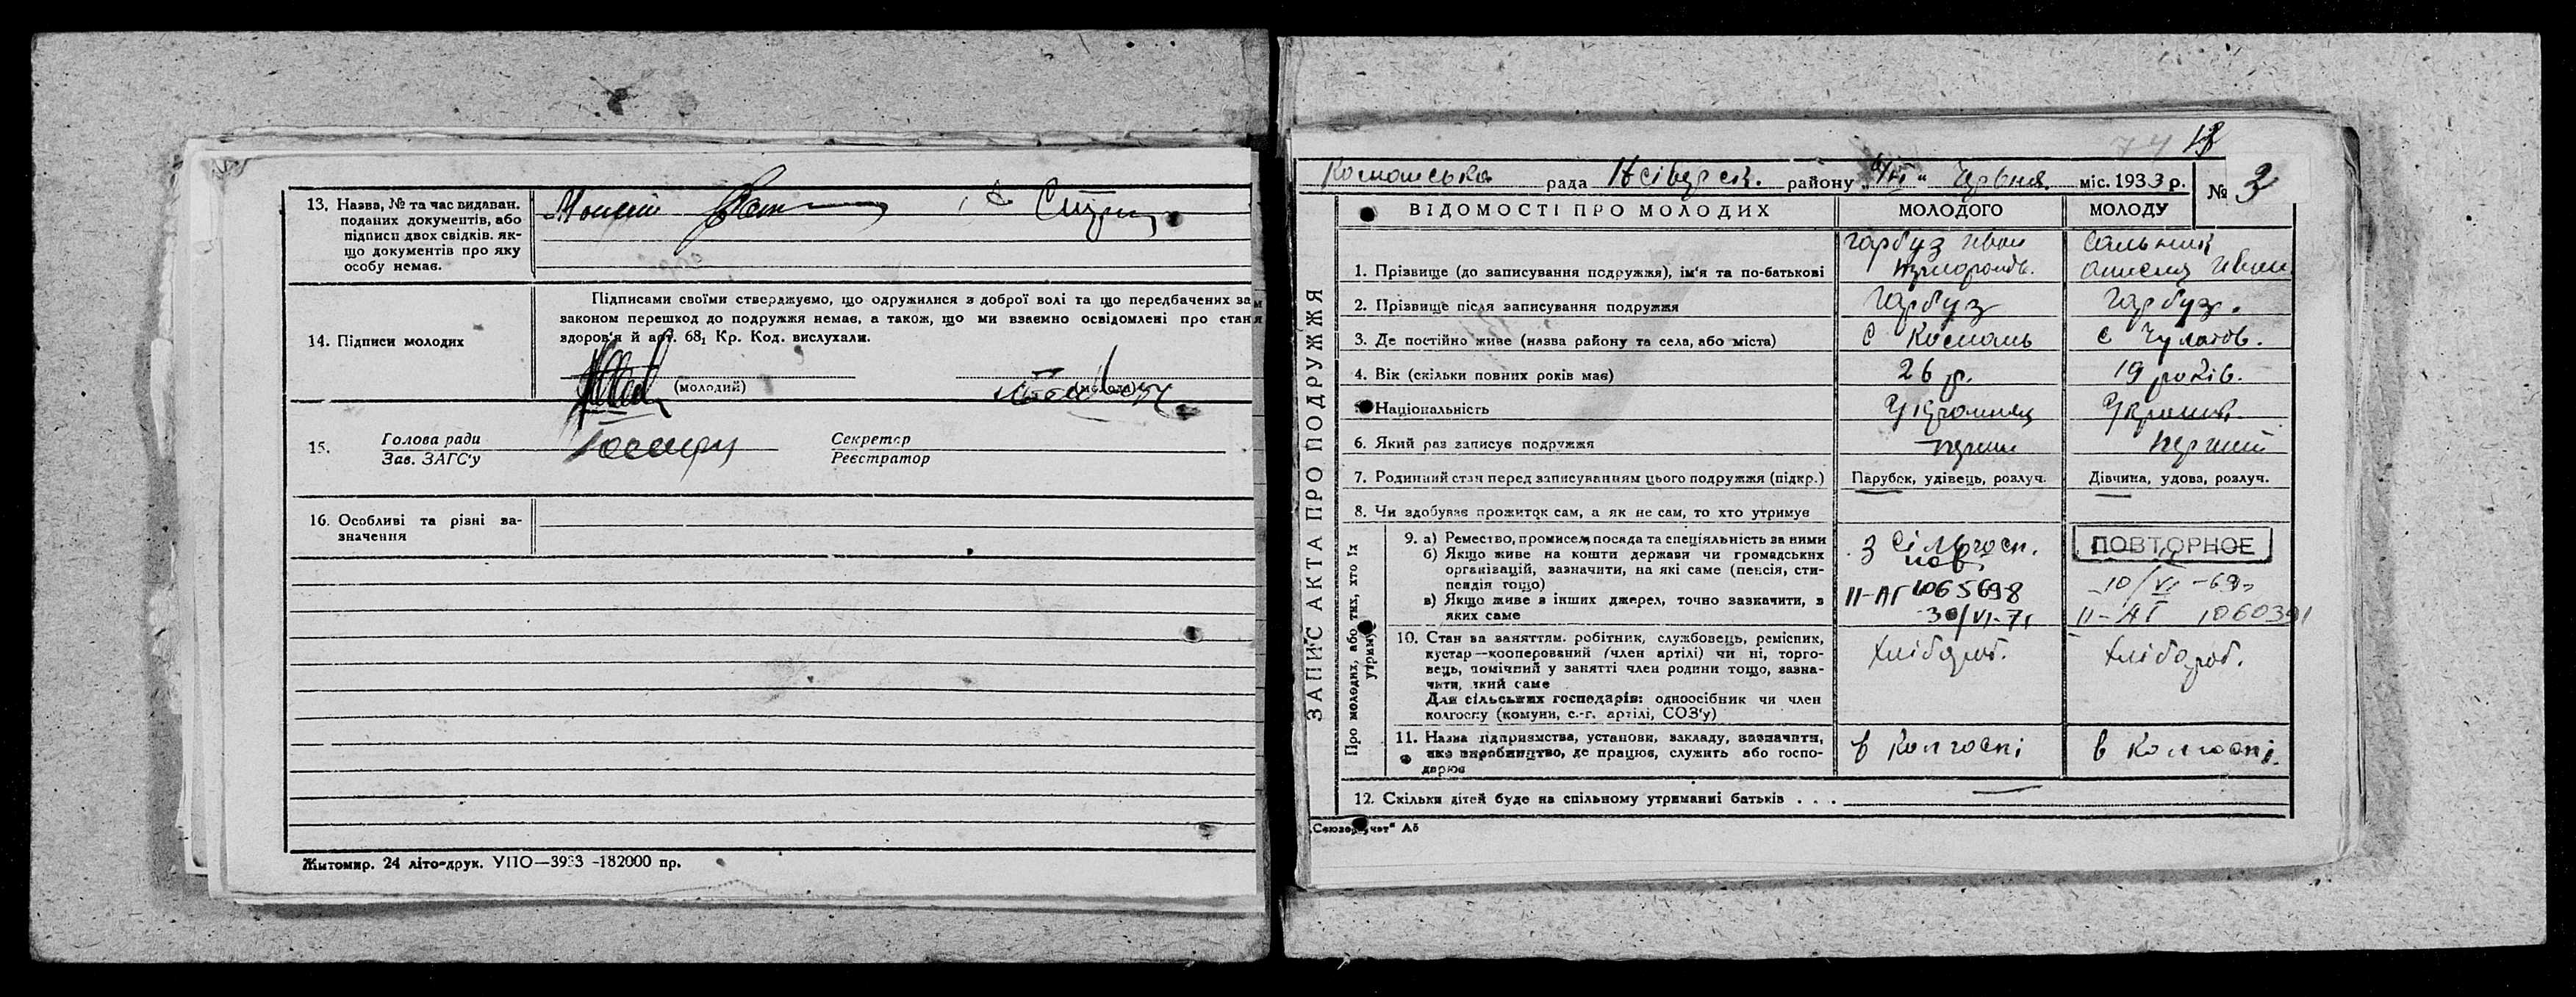 13. Назва, № та час видаван.
поданих документів, або
підписи двох свідків, як-
що документів про яку
особу немає.
Підписами своїми стверджуємо, що одружилися з доброї волі та що передбачених за
законом перешкод до подружжя немає, а також, що ми взаємно освідомлені про стан
здоров'я й арт. 68₁ Кр. Код. вислухали.
14. Підписи молодих
(молодий)
(молода)
15. Голова ради
Зав. ЗАГС'у
Секретар
Реєстратор
16. Особливі та різні за-
значення
Житомир. 24 літо-друк. УПО—3933 -182000 пр.
74 18
Команська рада Н сіверськ. району „ “ Червня міс. 1933 р. № 3
ЗАПИС АКТА ПРО ПОДРУЖЖЯ
ВІДОМОСТІ ПРО МОЛОДИХ МОЛОДОГО МОЛОДУ
1. Прізвище (до записування подружжя), ім'я та по-батькові Гарбуз Иван Иван.
2. Прізвище після записування подружжя Гарбуз Гарбуз.
3. Де постійно живе (назва району та села, або міста) с Комань с Чулатов.
4. Вік (скільки повних років має) 26 р. 19 років.
5. Національність Українец Україн.
6. Який раз записує подружжя перший перший
7. Родинний стан перед записуванням цього подружжя (підкр.) Парубок, удівець, розлуч. Дівчина, удова, розлуч.
8. Чи здобуває прожиток сам, а як не сам, то хто утримує
Про молодих, або тих, хто їх утримує
9. а) Ремество, промисел, посада та спеціяльність за ними
б) Якщо живе на кошти держави чи громадських
організацій, зазначити, на які саме (пенсія, сти-
пендія тощо)
в) Якщо живе з інших джерел, точно зазначити, з
яких саме
з сільгосп.
пов.
II-АГ 1065698
30/VI-71
ПОВТОРНОЕ
10/VI-69
II-АГ 1060391
10. Стан за заняттям. робітник, службовець, ремісник,
кустар—кооперований (член артілі) чи ні, торго-
вець, помічний у занятті член родини тощо, зазна-
чити, який саме
Для сільських господарів: одноосібник чи член
колгоспу (комуни, с.-г. артілі, СОЗ'у)
хлібороб. хлібороб.
11. Назва підприємства, установи, закладу, зазначити,
яке виробництво, де працює, служить або госпо-
дарює
в колгоспі в колгоспі.
12. Скільки дітей буде на спільному утриманні батьків . . . —
„Союзоручет“ Аб